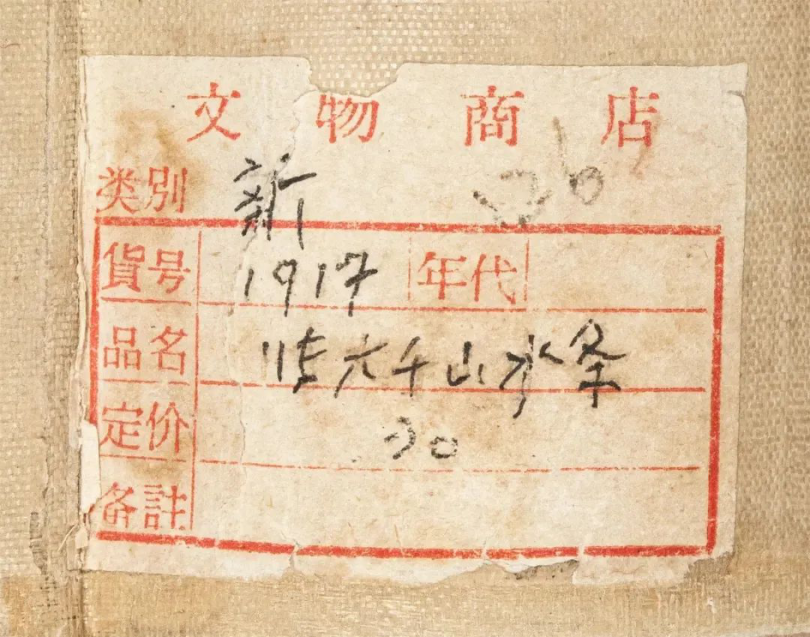 文物商店
类別 新
貨号 1917 年代
品名 张大千山水条
定价 30
备註